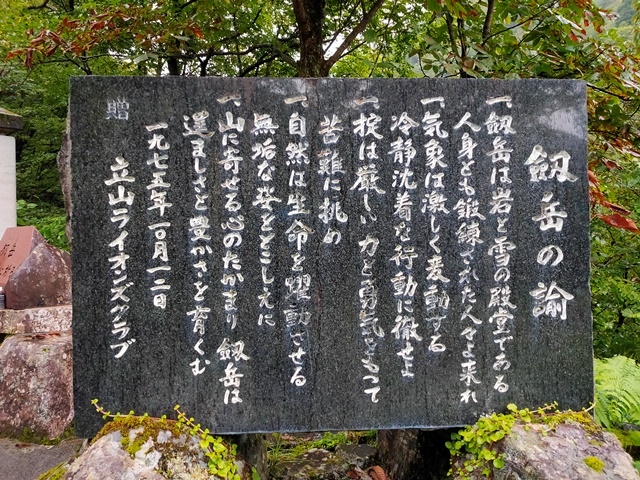 劔岳の諭
一劔岳は岩と雪の殿堂である
人身ども鍛錬された人々よ来れ
一気象は激しく変動する
冷静沈着な行動に徹せよ
一掟は厳しい力と勇気をもって
苦難に挑め
一自然は生命を躍動させる
無垢な姿をとこしえに
一山に寄せる心のたかまり 劔岳は
逞ましさと豊かさを育くむ
一九七五年一〇月一二日
贈 立山ライオンズクラブ